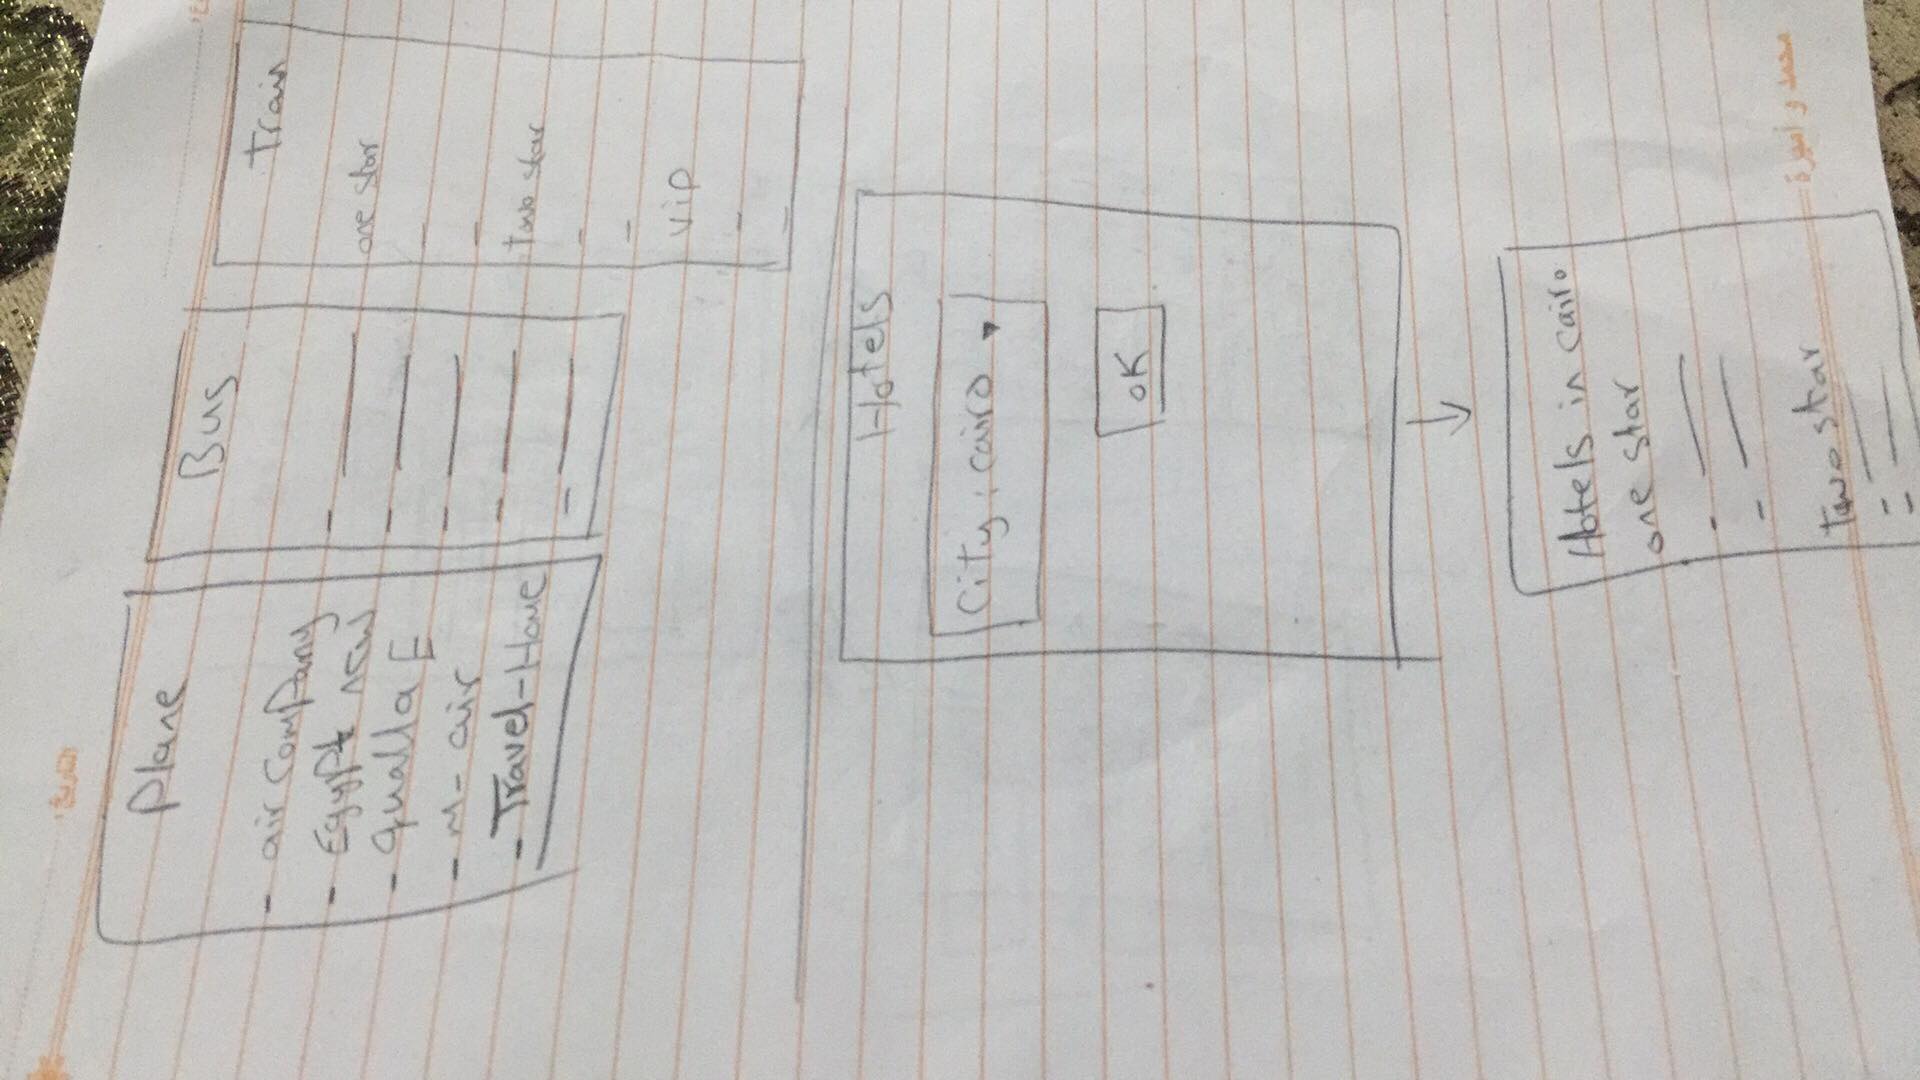 Plane
- air company
- Egypt new
- qualla E
- M-air
- Travel-Home
Bus
Train
one star
-
-
two star
-
-
vip
-
-
Hotels
City: cairo ▼
OK
↓
Hotels in cairo
one star
-
-
two star
-
-
محمد و أميرة
التاريخ: